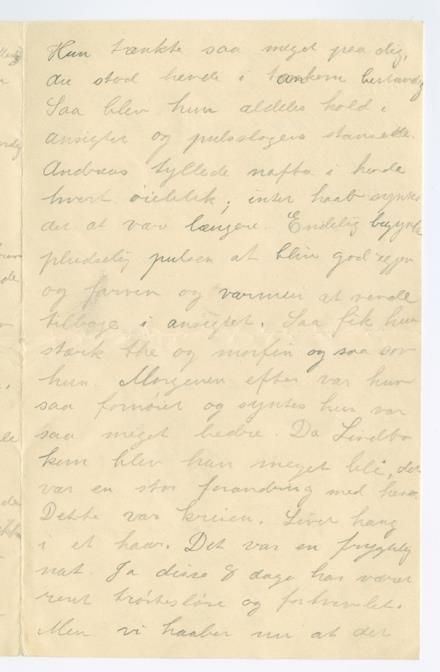 Hun tænkte saa meget paa dig,
du stod hende i tankerne bestandig
Saa blev hun aldeles kold i
ansigtet og pulsslagene stansede.
Andreas fyllede nafta i hende
hvert øieblik, intet haab syntes
det at være længere. Endelig begynte
pludselig pulsen at blive god igjen
og farven og varmen at vende
tilbage i ansigtet. Saa fik hun
stærk the og morfin og saa sov
hun. Morgenen efter var hun
saa fornøiet og syntes hun var
saa meget bedre. Da Lindbo
kom blev han meget blid, det
var en stor forandring med hende
Dette var krisen. Livet hang
i et haar. Det var en frygtelig
nat. Ja disse 8 dage har været
rent trøstesløse og fortvivlet.
Men vi haaber nu at det